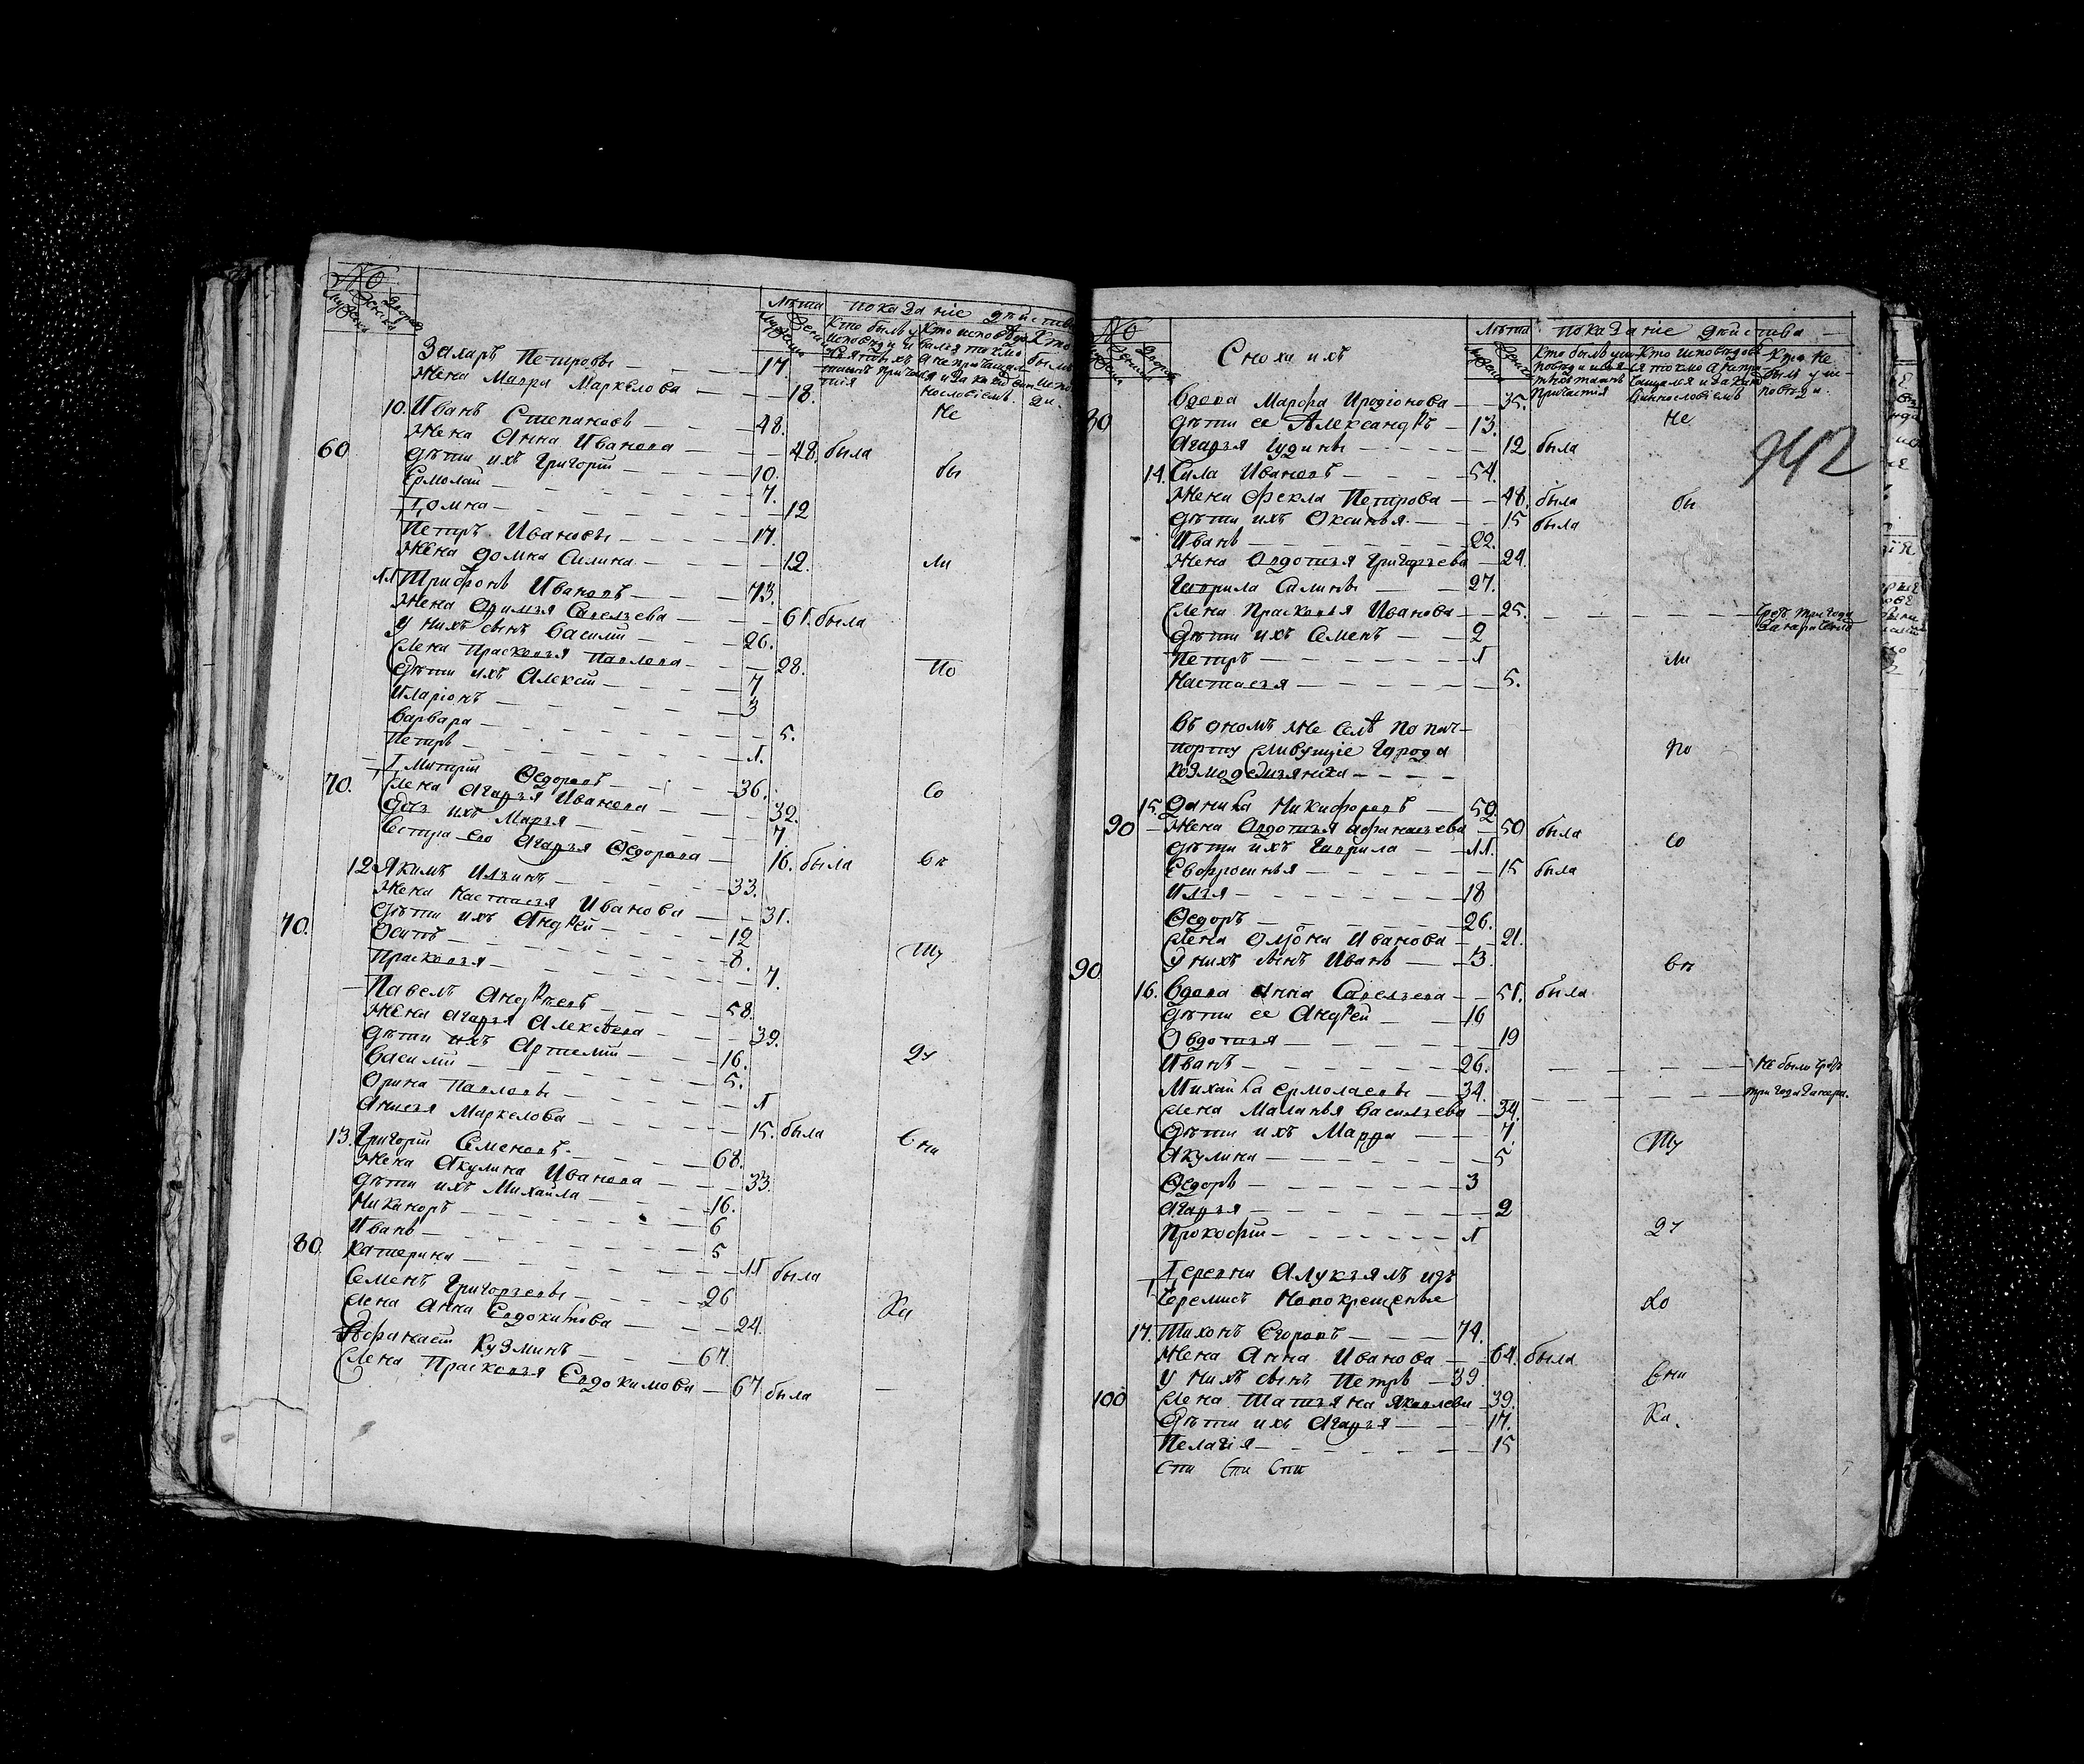 №
мужеска женска дворовъ
Лѣта показаніе дѣйства
мужеска женска
Захаръ Петровъ 17.
Жена Мавра Маркелова 18.
Не
10. Иванъ Степановъ 48.
Жена Анна Иванова 48. была
60 дѣти ихъ Григорій 10. бы
Ермолай 7.
Домна 12
Петръ Ивановъ 17.
Жена домна Силина 12. ли
11 Трифонъ Ивановъ 73.
Жена Афимья Савельева 61. была
У нихъ сынъ Василій 26.
Жена Прасковья Павлова 28. По
Дѣти ихъ Алексѣй 7
Иларіонъ 3
Варвара 5.
Петръ 1.
Дмитрій Ѳедоровъ 36. Со
70. Жена Агафья Иванова 32.
Дочь ихъ Марья 7
Сестра его Агафья Ѳедорова 16. была вѣ
12 Якимъ Ильинъ 33.
Жена Настасья Иванова 31.
Дѣти ихъ Андрѣй 12
70. Осипъ 8. ту
Прасковья 7.
Павелъ Андрѣевъ 58.
Жена Агафья Алексѣева 39.
Дѣти ихъ Артемій 16. ду
Василій 5.
Орина Павловы 1
Анисья Маркелова 15. была
13. Григорій Семеновъ 68. Сни
Жена Акулина Иванова 33.
Дѣти ихъ Михайла 16.
Никаноръ 6
Иванъ 5
80. Катерина 11 была
Семенъ Григорьевъ 26 Ка
Жена Анна Евдокимова 24.
Афанасій Кузминъ 67.
Жена Прасковья Евдокимова 67 была
№
Лѣта показаніе дѣйства
Снохи ихъ
Кто не былъ у исповѣди.
942
Вдова Марфа Иродіонова 35.
80 Дѣти ее Александръ 13. Не
Агафья Гудины 12 была
14. Сила Ивановъ 54.
Жена Фекла Петрова 48. была бы
Дѣти ихъ Оксинья 15 была
Иванъ 22.
Жена Овдотья Григорьева 24.
Гаврила Силинъ 27.
Жена Прасковья Иванова 25.
Дѣти ихъ Семенъ 2
Петръ 1 ли
Настасья 5.
Въ ономъ же селѣ по пач-
порту живущіе города
Козмодемьянска По
15. Данила Никифоровъ 52.
90 Жена Овдотья Афанасьева 50 была Со
Дѣти ихъ Гаврила 11.
Евфросинья 15 была
Илья 18
Ѳедоръ 26.
Жена Олёна Иванова 21.
90 У нихъ сынъ Иванъ 3. вѣ
16. Вдова Анна Савельева 51. была
Дѣти ее Андрѣй 16
Овдотья 19
Иванъ 26.
Михайла Ермолаевъ 34.
Жена Маланья Васильева 34.
Дѣти ихъ Марфа 7. ту
Акулина 5
Ѳедоръ 3
Агафья 2
Прокофій 1 ду
Деревни Алукьялъ изъ
Черемисъ Новокрещеныя хо
17. Тихонъ Егоровъ 74.
Жена Анна Иванова 64. была
У нихъ сынъ Петръ 39 Сни
100 Жена Татьяна Яковлева 39.
Дѣти ихъ Агафья 17. Ка.
Пелагія 15